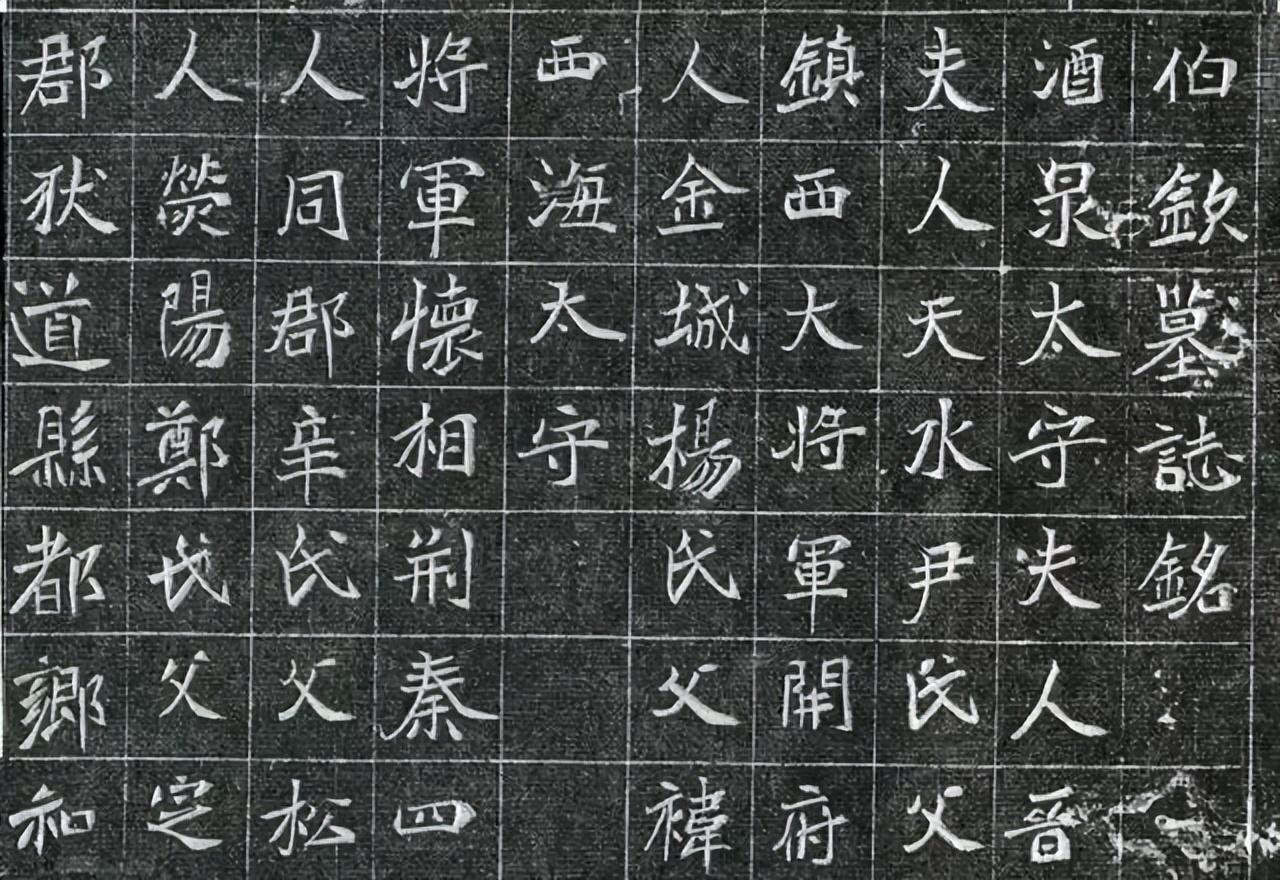 伯欽墓誌銘
酒泉太守夫人晉
夫人天水尹氏父
鎮西大將軍開府
人金城楊氏父禕
西海太守
將軍懷相荊秦四
人同郡辛氏父松
人熒陽鄭氏父定
郡狄道縣都鄉和